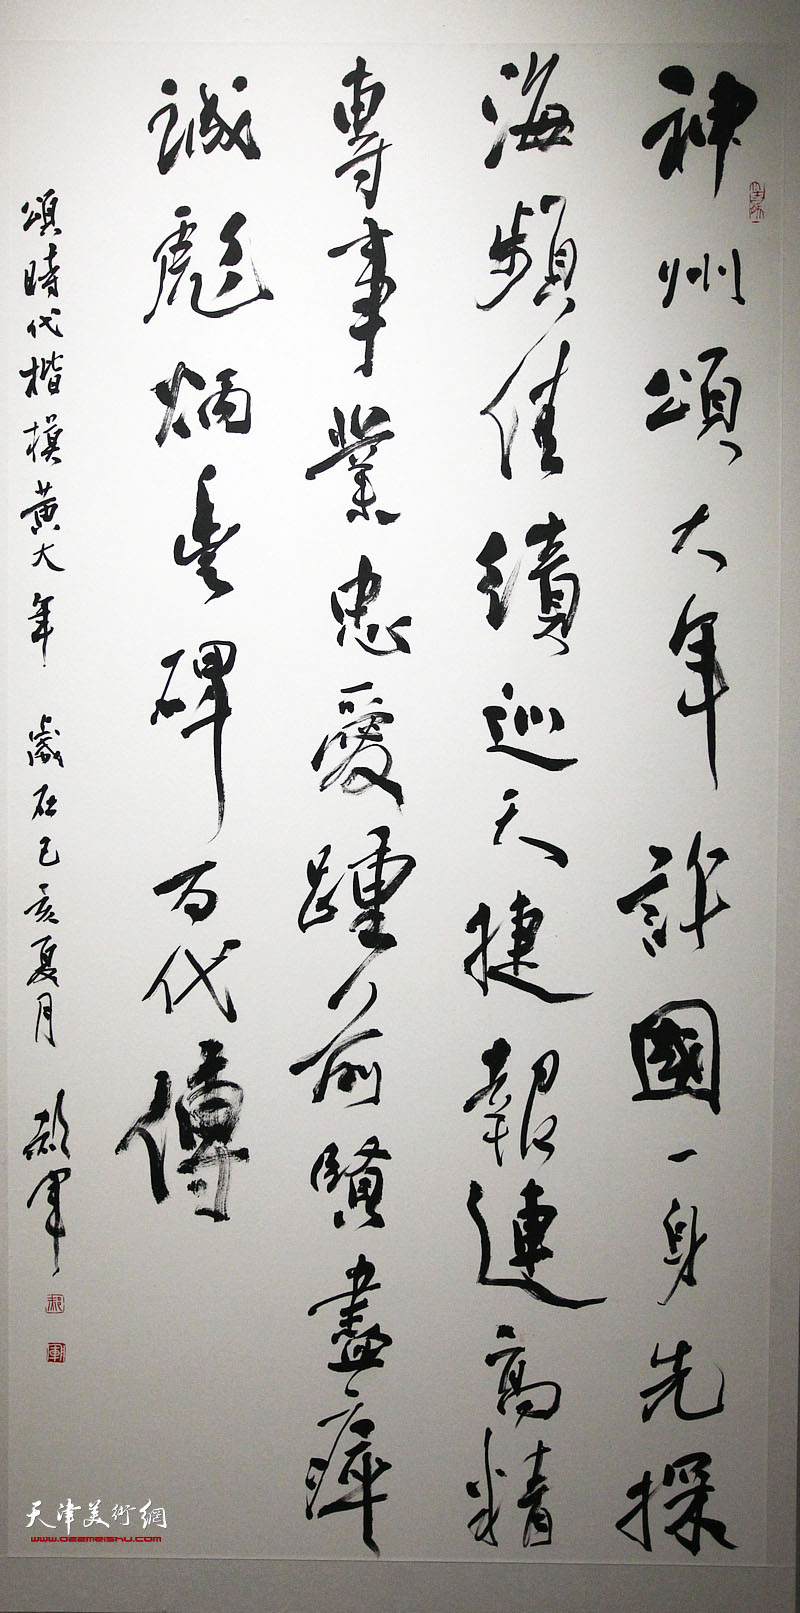 神州頌大年許國一身先探
海頻佳績巡天捷報連高精
專事業忠愛踵前賢盡瘁
誠彪炳豐碑百代傳
頌時代楷模黃大年 歲在己亥夏月 郝軍
郝
軍
天津美術網
www.022meishu.com